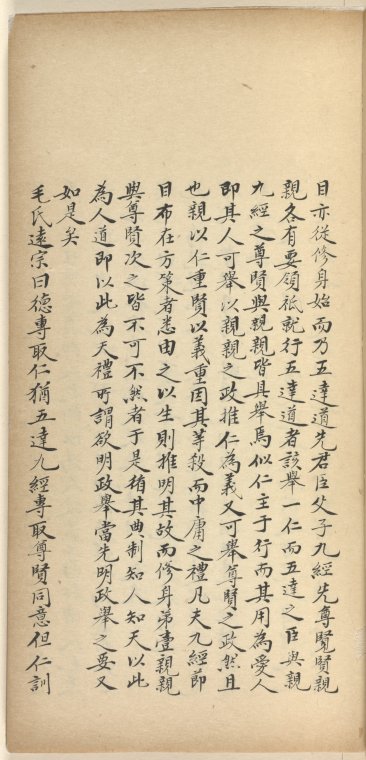 目亦從修身始而乃五達道先君臣父子九經先尊賢賢親
親各有要領祇就行五達道者該舉一仁而五達之臣與親
九經之尊賢與親親皆具舉焉似仁主于行而其用為愛人
即其人可舉以親親之政推仁為義又可舉尊賢之政然且
也親以仁重賢以義重因其等殺而中庸之禮凡夫九經節
目布在方策者悉由之以生則推明其故而修身第壹親親
與尊賢次之皆不可不然者于是稽其典制知人知天以此
為人道即以此為天禮所謂欲明政舉當先明政舉之要又
如是矣
毛氏遠宗曰德專取仁猶五達九經專取尊賢同意但仁訓